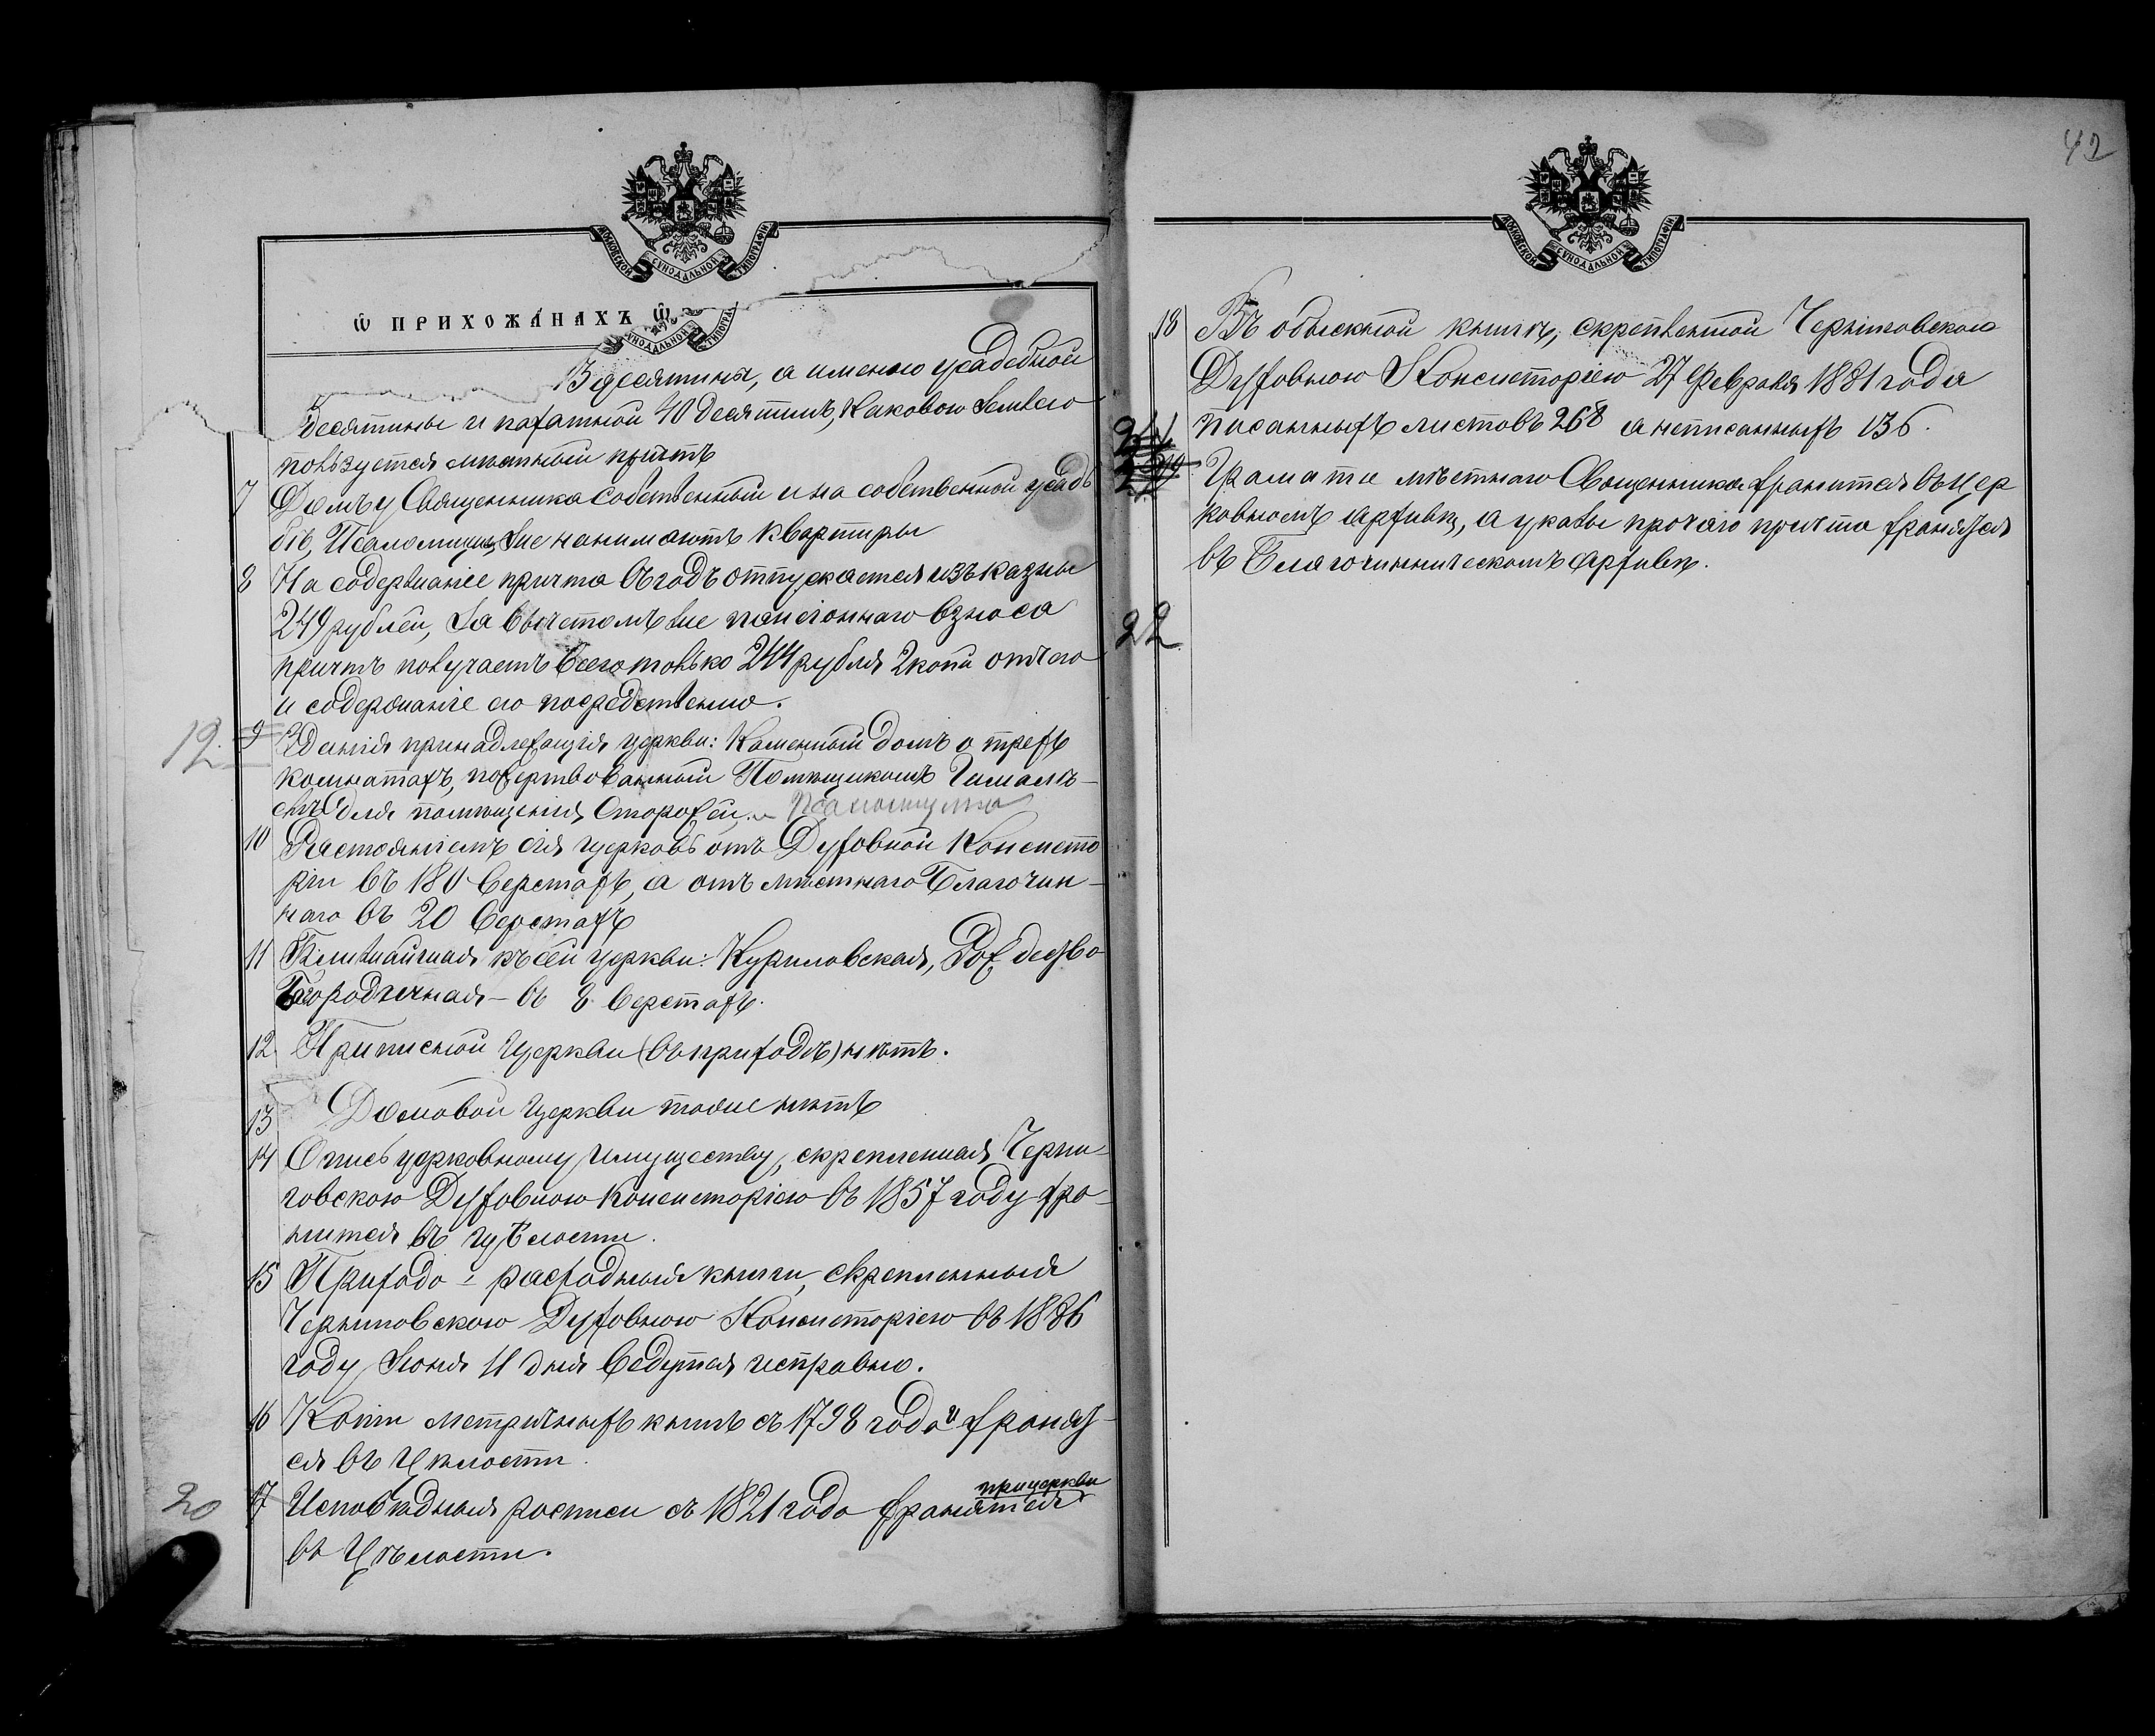 42
МОСКОВСКОЙ СѴНОДАЛЬНОЙ ТИПОГРАФІИ
Ѡ ПРИХОЖАНАХЪ Ѡ
УНОДАЛЬНОЙ ТИПОГРА
3 десятина, а именно усадебной
десятины и пахатной 40 десятинъ, каковою землею
пользуется мѣстный причтъ
7 Домъ у Священника собственный и на собственной усадь
бѣ, Псаломщикъ же нанимаютъ квартиры
8 На содержаніе причта въ годъ отпускается изъ казны
249 рублей, за вычетомъ же пансіоннаго взноса
причтъ получаетъ всего только 244 рубля 2 копи отчего
и содержаніе его посредственно.
12. 9 Зданія принадлежащія церкви: Каменный домъ о трехъ
комнатахъ, пожертвованный Помѣщикомъ
для помѣщенія Сторожей. и Псаломщика
10 Растояніемъ сія церковь отъ Духовной Консисто
ріи въ 180 верстахъ, а отъ мѣстнаго Благочин-
наго въ 20 верстахъ
11 Ближайшая къ сей церкви: Куриловская, Рождество
Богородичная – въ 8 верстахъ.
12 Приписной Церкви (въ приходѣ) нѣтъ.
13 Домовой Церкви тоже нѣтъ
14 Опись церковному имуществу, скрепленная Черни-
говскою Духовною Консисторіею въ 1857 году хра-
нится въ цѣлости.
15 Приходо-расходныя книги, скрепленныя
Черниговскою Духовною Консисторіею въ 1886
году Іюня 11 дня ведутся исправно.
16 Копіи метричныхъ книгъ съ 1798 года хранят-
ся въ цѣлости.
20 17 Исповѣдныя росписи съ 1821 года хранятся при церкви
въ Цѣлости.
18 Въ обыскной книгѣ, скрепленной Черниговскою
Духовною Консисторіею 27 Февраля 1881 года
писанныхъ листовъ 268 а неписанныхъ 136.
Грамата мѣстнаго Священника хранится въ цер
ковномъ архивѣ, а указы прочаго причта хранятся
въ Благочинническомъ архивѣ.
22
МОСКОВСКОЙ СѴНОДАЛЬНОЙ ТИПОГРАФІИ